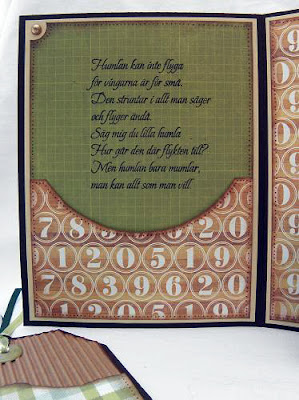 Humlan kan inte flyga
för vingarna är för små.
Den struntar i allt man säger
och flyger ändå.
Säg mig du lilla humla
Hur går den där flykten till?
Men humlan bara mumlar,
man kan allt som man vill.
7 8 3 9 5 9 2 0
1 2 0 5 1 9
7 8 3 9 6 2 0
1 2 0 5 1 9